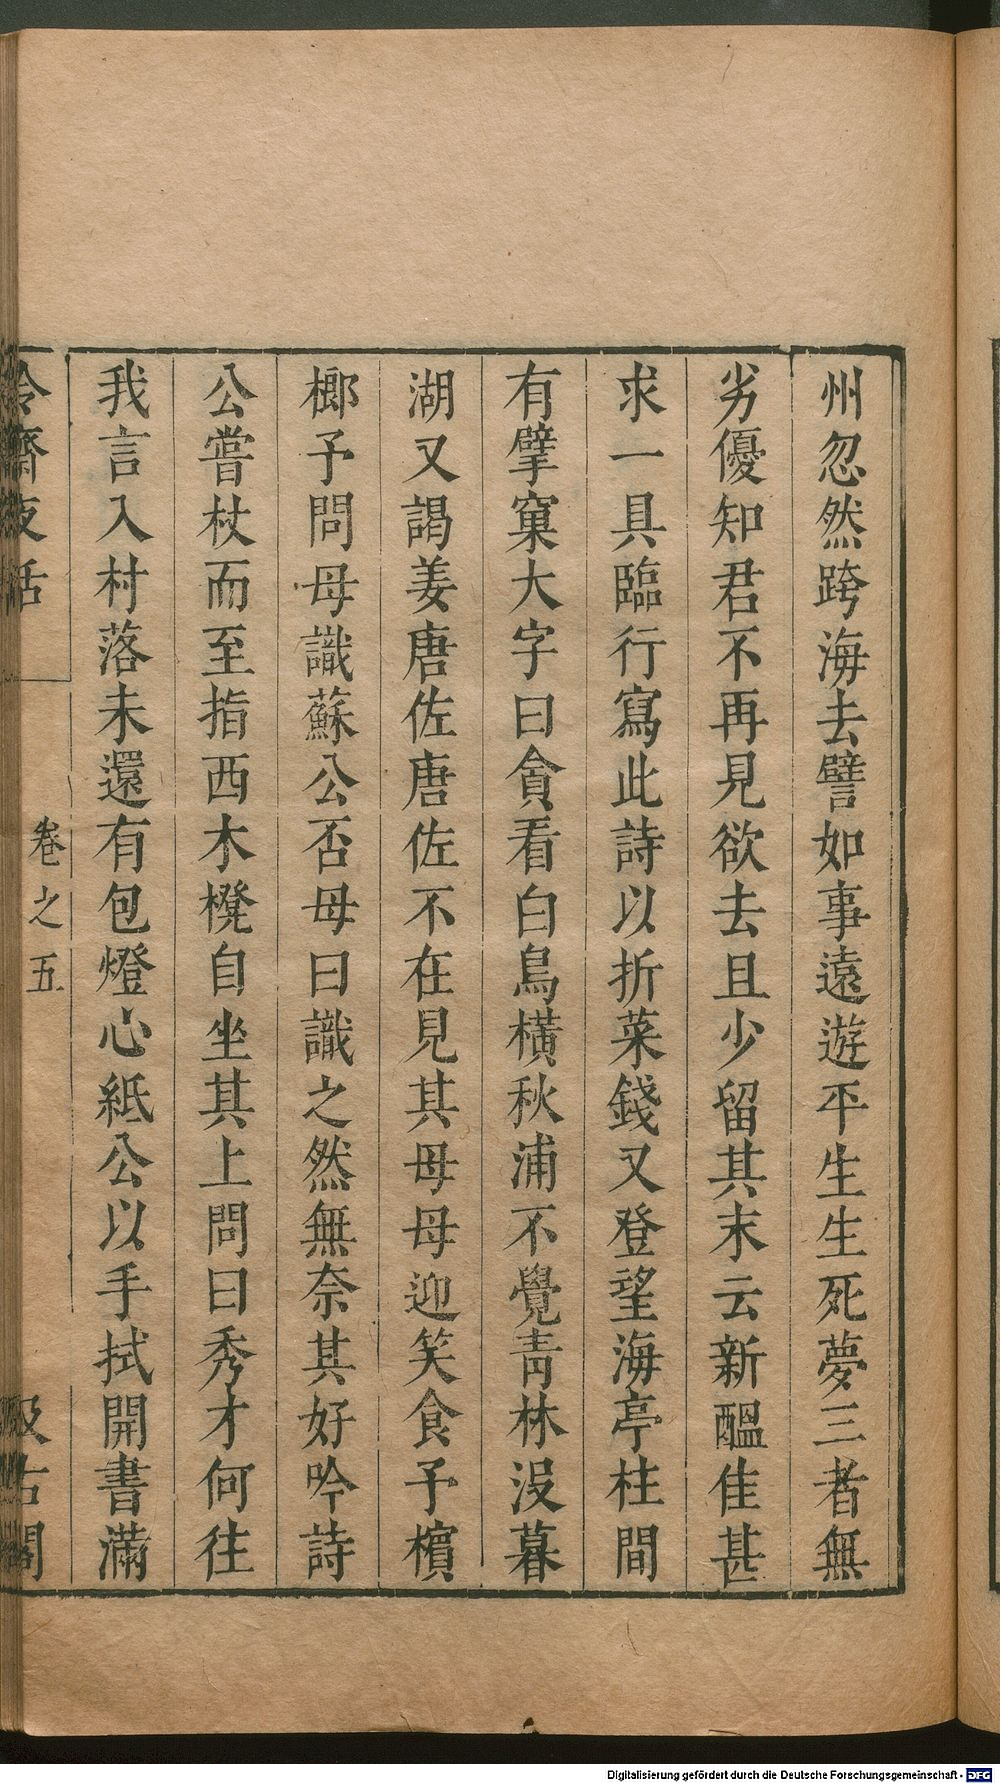 州忽然跨海去譬如事遠遊平生生死夢三者無
劣優知君不再見欲去且少留其末云新醞佳甚
求一具臨行寫此詩以折菜錢又登望海亭柱間
有擘窠大字曰貪看白鳥橫秋浦不覺青林沒暮
湖又謁姜唐佐唐佐不在見其母母迎笑食予檳
榔予問母識蘇公否母曰識之然無奈其好吟詩
公嘗杖而至指西木櫈自坐其上問曰秀才何往
我言入村落未還有包燈心紙公以手拭開書滿
冷齋夜話 卷之五 汲古閣
Digitalisierung gefördert durch die Deutsche Forschungsgemeinschaft - DFG